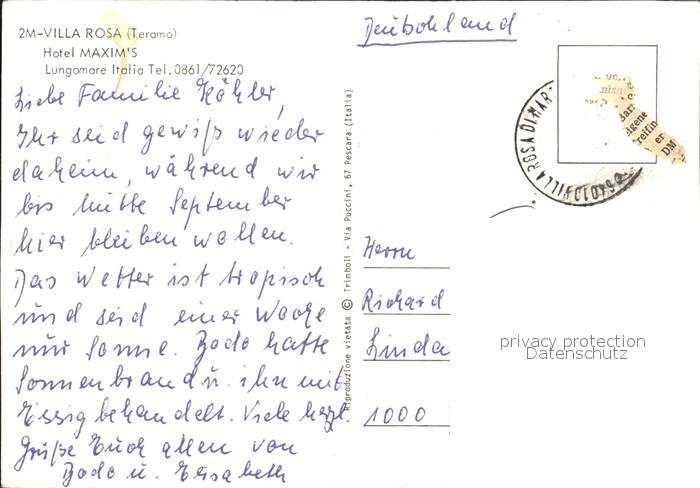 2M-VILLA ROSA (Teramo)
Hotel MAXIM'S
Lungomare Italia Tel. 0861/72620
Liebe Familie Köhler,
Ihr seid gewiß wieder
daheim, während wir
bis Mitte September
hier bleiben wollen.
Das Wetter ist tropisch
und seid einer Woche
nur Sonne. Bodo hatte
Sonnenbrand u. ihn mit
Essig behandelt. Viele herzl.
Grüße Euch allen von
Bodo u. Elisabeth
Riproduzione vietata © Trimboli - Via Puccini, 67 Pescara (Italia)
Deutschland
VILLA ROSA DI MART
64010
Herrn
Richard
Linda
1000
privacy protection
Datenschutz